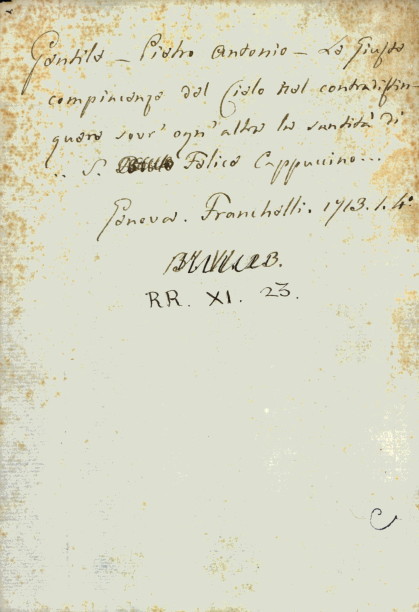 Gentile – Pietro Antonio – La Giusta
compiacenza del Cielo nel contradistin-
guere sovr' ogn' altra la santità di
.. S. Felice Cappuccino...
Genova. Franchelli. 1713. 1. 4°
RR. XI. 23.
C